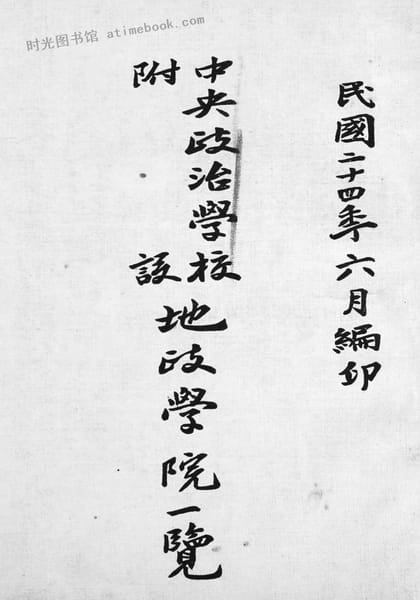 时光图书馆 atimebook.com
民國二十四季六月編印
中央政治學校
附設
地政學院一覽